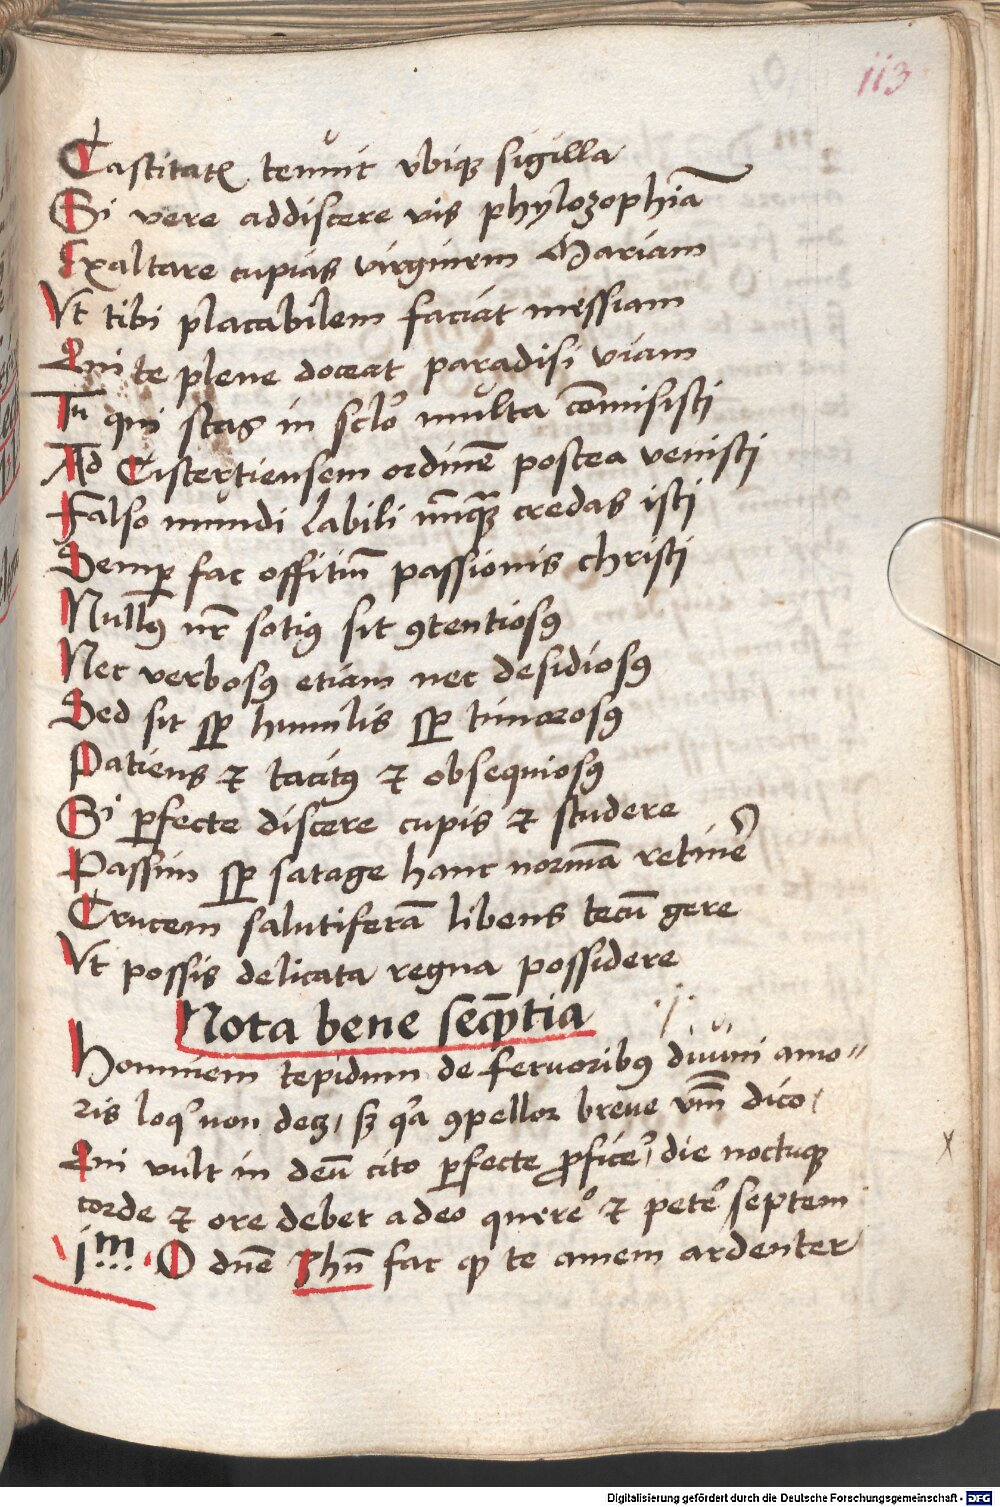 113
Castitatē tenuit vbiqꝫ sigilla
Si vere addiscere vis phylozophiā
Exaltare cupias virginem Mariam
Vt tibi placabilem faciat messiam
Qui te plene doceat paradisi viam
Tu qui stas in sclo multa cōmisisti
Ad Cistertiensem ordinē postea venisti
Falso mundi labili nūqꝫ credas isti
Semꝑ fac offitiū passionis christi
Nullꝰ nr̄ sotiꝰ sit ꝯtentiosꝰ
Nec verbosꝰ etiam nec desidiosꝰ
Sed sit sꝑ humilis sꝑ timorosꝰ
Patiens ⁊ tacitꝰ ⁊ obsequiosꝰ
Si ꝑfecte discere cupis ⁊ studere
Passim sꝑ satage hanc normā retinē
Crucem salutiferā libens tecū gere
Vt possis delicata regna possidere
Nota bene seq̄ntia
Hominem tepidum de feruoribꝰ diuini amo
ris loqͥ non decꝫ / sꝫ qͥa ꝯpellor breue vnū dico /
Qui vult in deū cito ꝑfecte ꝓficē / die noctuqꝫ
corde ⁊ ore debet a deo querē ⁊ petē septem
jm O dn̄e Jhū fac qꝫ te amem ardenter
x
Digitalisierung gefördert durch die Deutsche Forschungsgemeinschaft - DFG